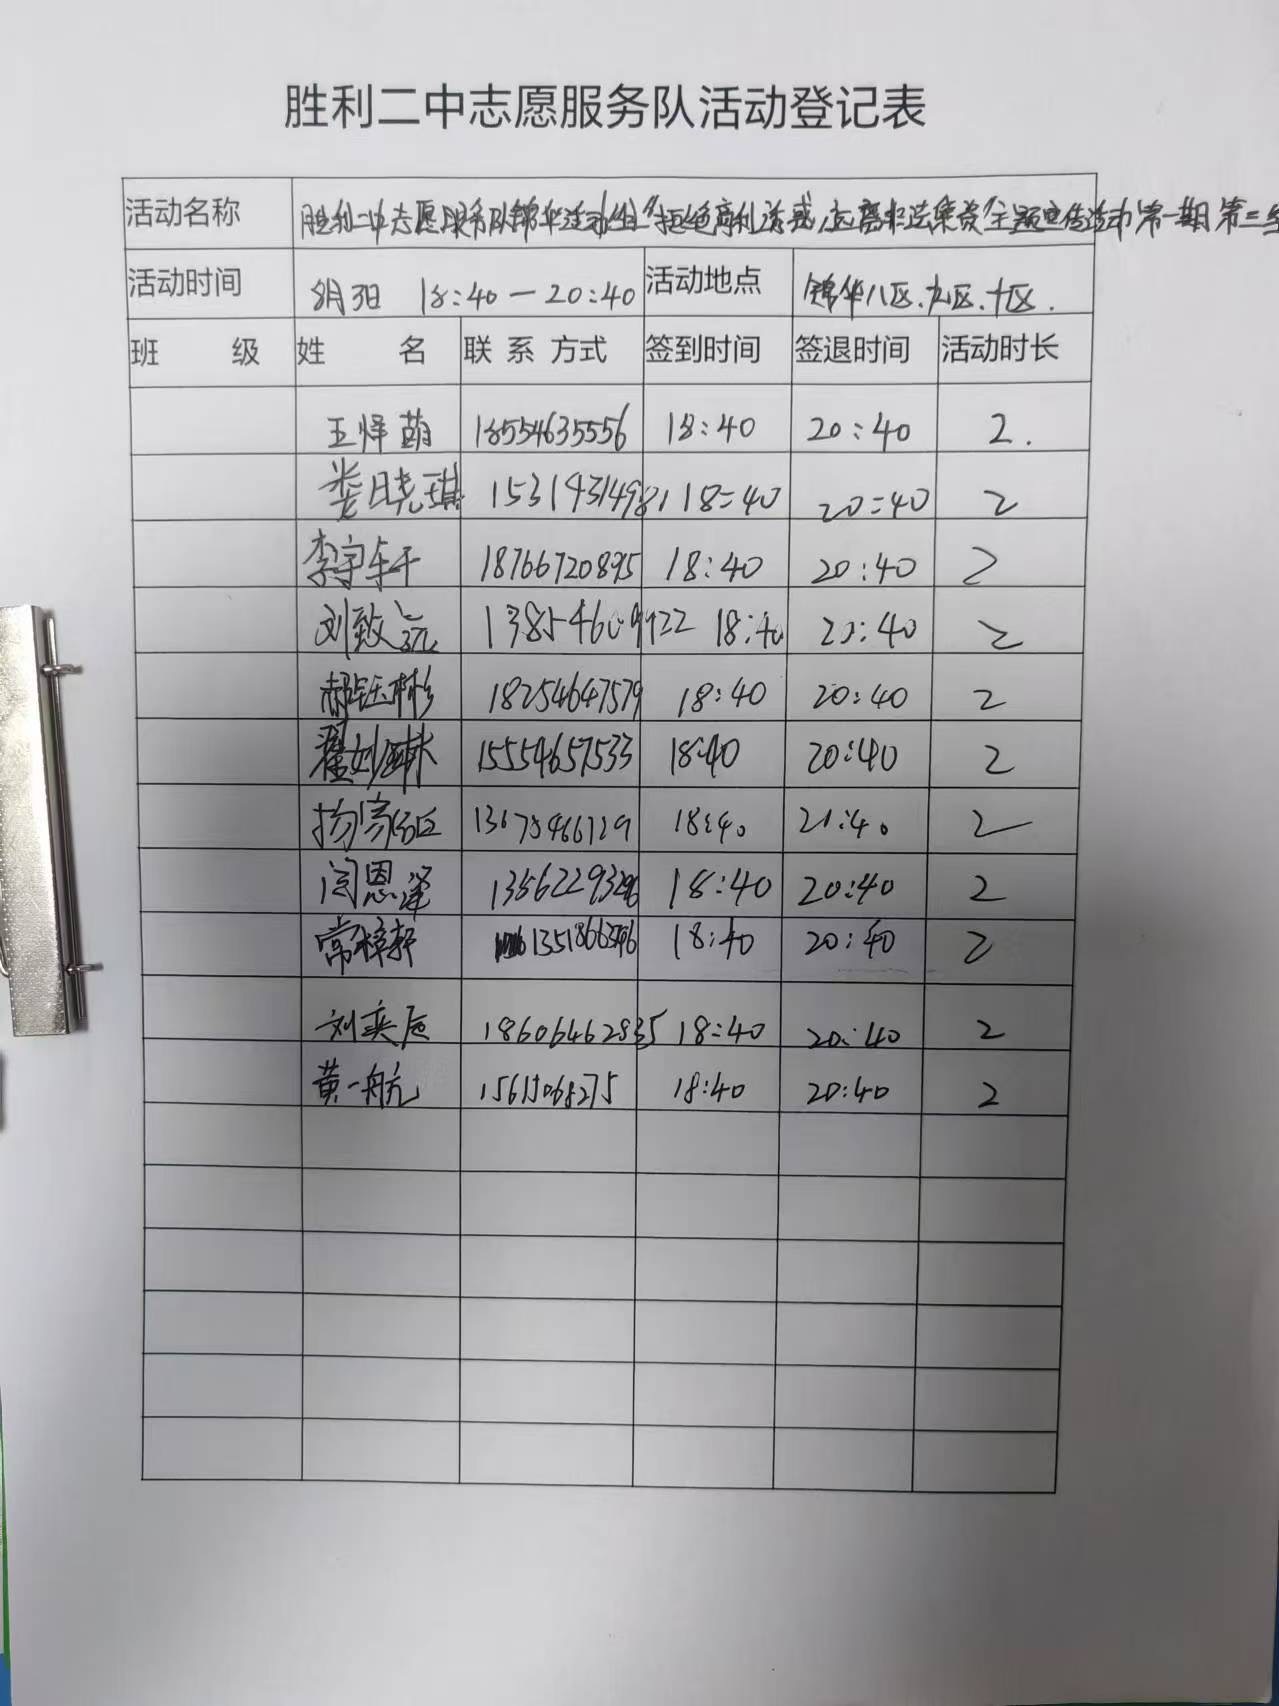 胜利二中志愿服务队活动登记表
活动名称 胜利二中志愿服务队锦华活动组“拒绝高利诱惑,远离非法集资”主题宣传活动第一期第三组
活动时间 8月3日 18:40—20:40 活动地点 锦华八区、九区、十区.
班 级 姓 名 联 系 方式 签到时间 签退时间 活动时长
王烊萌 18554635556 18:40 20:40 2.
娄晓琪 15319431498 18:40 20:40 2
李宇轩 18766720895 18:40 20:40 2
刘致远 13854609922 18:40 20:40 2
郝钰彬 18254647579 18:40 20:40 2
翟 15554657533 18:40 20:40 2
18:40 21:40 2
闫恩泽 18:40 20:40 2
常梓轩 18:40 20:40 2
刘奕辰 18606462835 18:40 20:40 2
黄一航 18:40 20:40 2